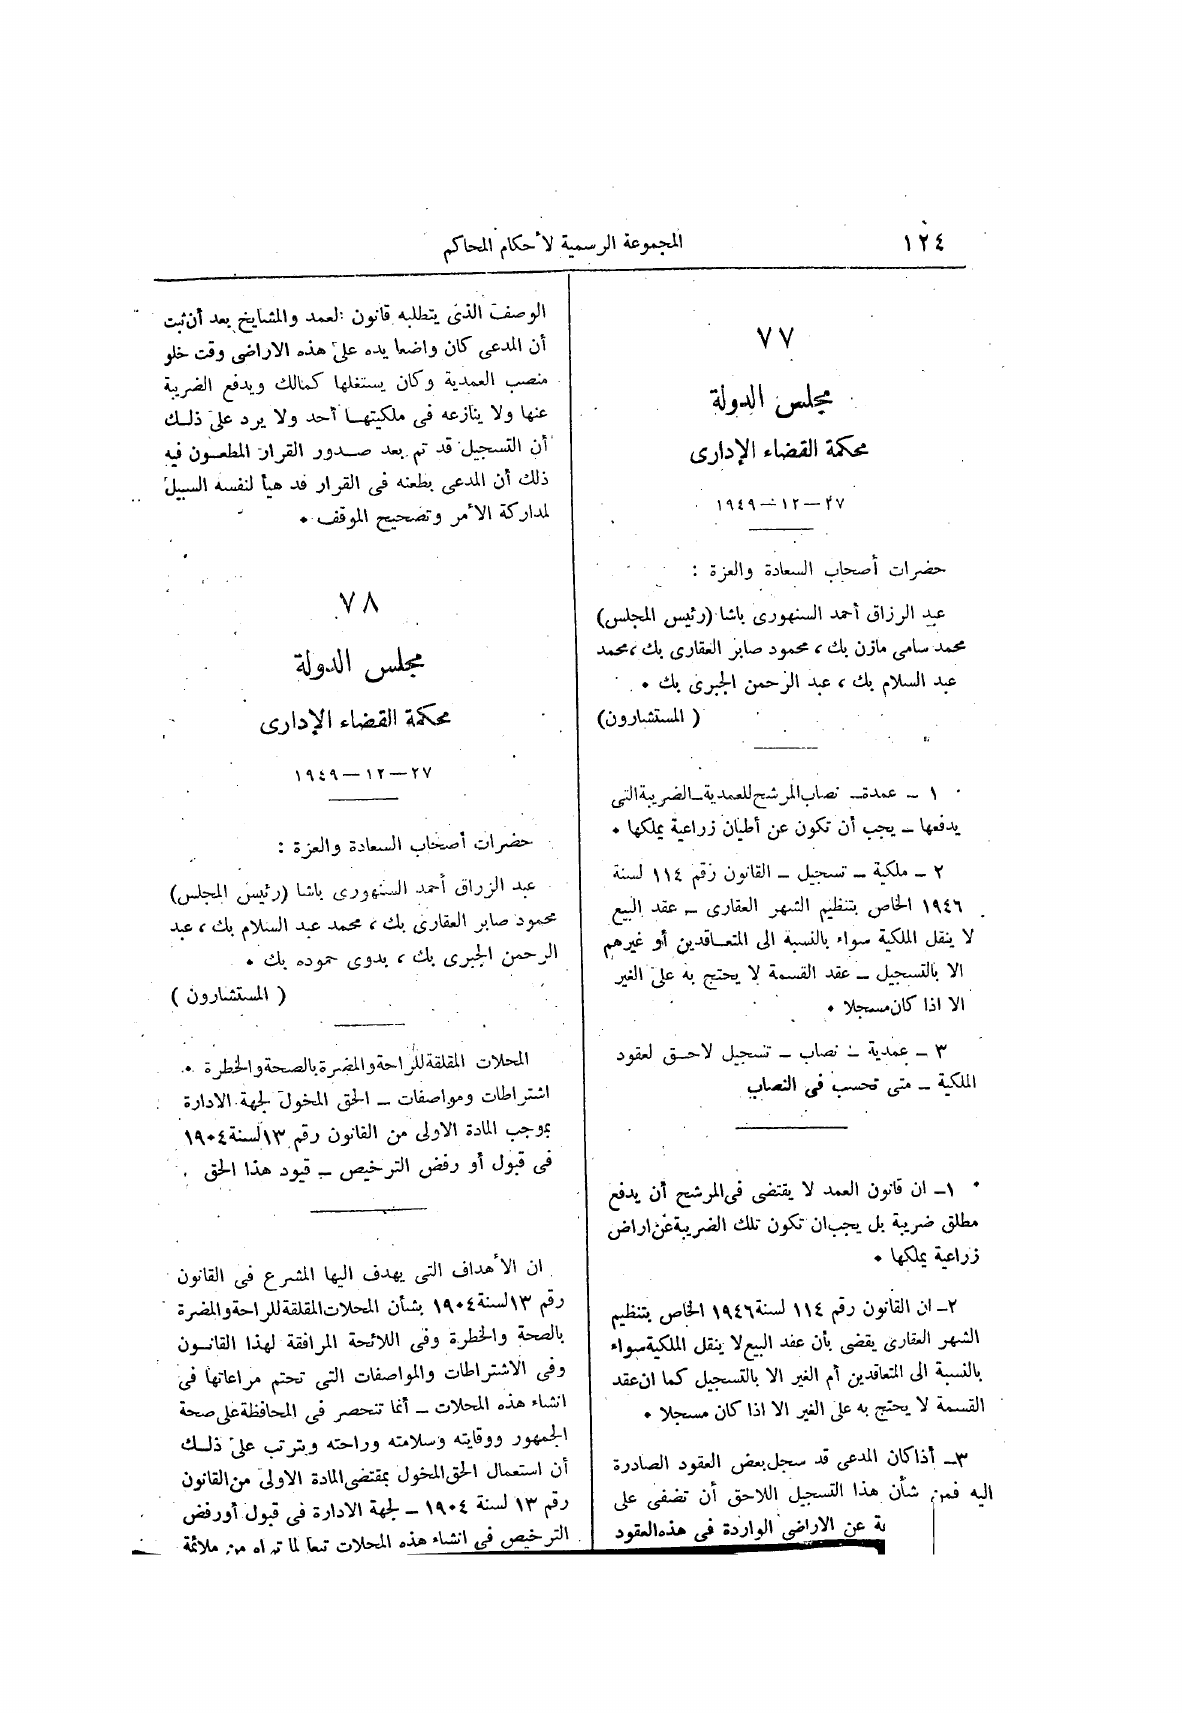 ١٢٤
المجموعة الرسمية لأحكام المحاكم
٧٧
مجلس الدولة
محكمة القضاء الإدارى
٢٧ – ١٢ – ١٩٤٩
حضرات أصحاب السعادة والعزة :
عبد الرزاق أحمد السنهورى باشا (رئيس المجلس)
محمد سامى مازن بك ، محمود صابر العقارى بك ، محمد
عبد السلام بك ، عبد الرحمن الجبرى بك .
( المستشارون)
١ – عمدة – نصاب المرشح للعمدية – الضريبة التى
يدفعها – يجب أن تكون عن أطيان زراعية يملكها .
٢ – ملكية – تسجيل – القانون رقم ١١٤ لسنة
١٩٤٦ الخاص بتنظيم الشهر العقارى – عقد البيع
لا ينقل الملكية سواء بالنسبة الى المتعاقدين أو غيرهم
الا بالتسجيل – عقد القسمة لا يحتج به على الغير
الا اذا كان مسجلا .
٣ – عمدية – نصاب – تسجيل لاحق لعقود
الملكية – متى تحسب فى النصاب
١– ان قانون العمد لا يقتضى فى المرشح أن يدفع
مطلق ضريبة بل يجب ان تكون تلك الضريبة عن اراض
زراعية يملكها .
٢– ان القانون رقم ١١٤ لسنة ١٩٤٦ الخاص بتنظيم
الشهر العقارى يقضى بأن عقد البيع لا ينقل الملكية سواء
بالنسبة الى المتعاقدين أم الغير الا بالتسجيل كما ان عقد
القسمة لا يحتج به على الغير الا اذا كان مسجلا .
٣– أذا كان المدعى قد سجل بعض العقود الصادرة
اليه فمن شأن هذا التسجيل اللاحق أن تضفى على
ية عن الاراضى الواردة فى هذه العقود
الوصف الذى يتطلبه قانون العمد والمشايخ بعد أن ثبت
أن المدعى كان واضعا يده على هذه الاراضى وقت خلو
منصب العمدية وكان يستغلها كمالك ويدفع الضريبة
عنها ولا ينازعه فى ملكيتها أحد ولا يرد على ذلك
أن التسجيل قد تم بعد صدور القرار المطعون فيه
ذلك أن المدعى بطعنه فى القرار قد هيأ لنفسه السبيل
لمداركة الأمر وتصحيح الموقف .
٧٨
مجلس الدولة
محكمة القضاء الإدارى
٢٧ – ١٢ – ١٩٤٩
حضرات أصحاب السعادة والعزة :
عبد الرزاق أحمد السنهورى باشا (رئيس المجلس)
محمود صابر العقارى بك ، محمد عبد السلام بك ، عبد
الرحمن الجبرى بك ، بدوى حموده بك .
( المستشارون )
المحلات المقلقة للراحة والمضرة بالصحة والخطرة .
اشتراطات ومواصفات – الحق المخول لجهة الادارة
بموجب المادة الاولى من القانون رقم ١٣ لسنة ١٩٠٤
فى قبول أو رفض الترخيص – قيود هذا الحق .
ان الأهداف التى يهدف اليها المشرع فى القانون
رقم ١٣ لسنة ١٩٠٤ بشأن المحلات المقلقة للراحة والمضرة
بالصحة والخطرة وفى اللائحة المرافقة لهذا القانون
وفى الاشتراطات والمواصفات التى تحتم مراعاتها فى
انشاء هذه المحلات – أنما تنحصر فى المحافظة على صحة
الجمهور ووقايته وسلامته وراحته ويترتب على ذلك
أن استعمال الحق المخول بمقتضى المادة الاولى من القانون
رقم ١٣ لسنة ١٩٠٤ – لجهة الادارة فى قبول أو رفض
الترخيص فى انشاء هذه المحلات تبعا لما تراه من ملائمة